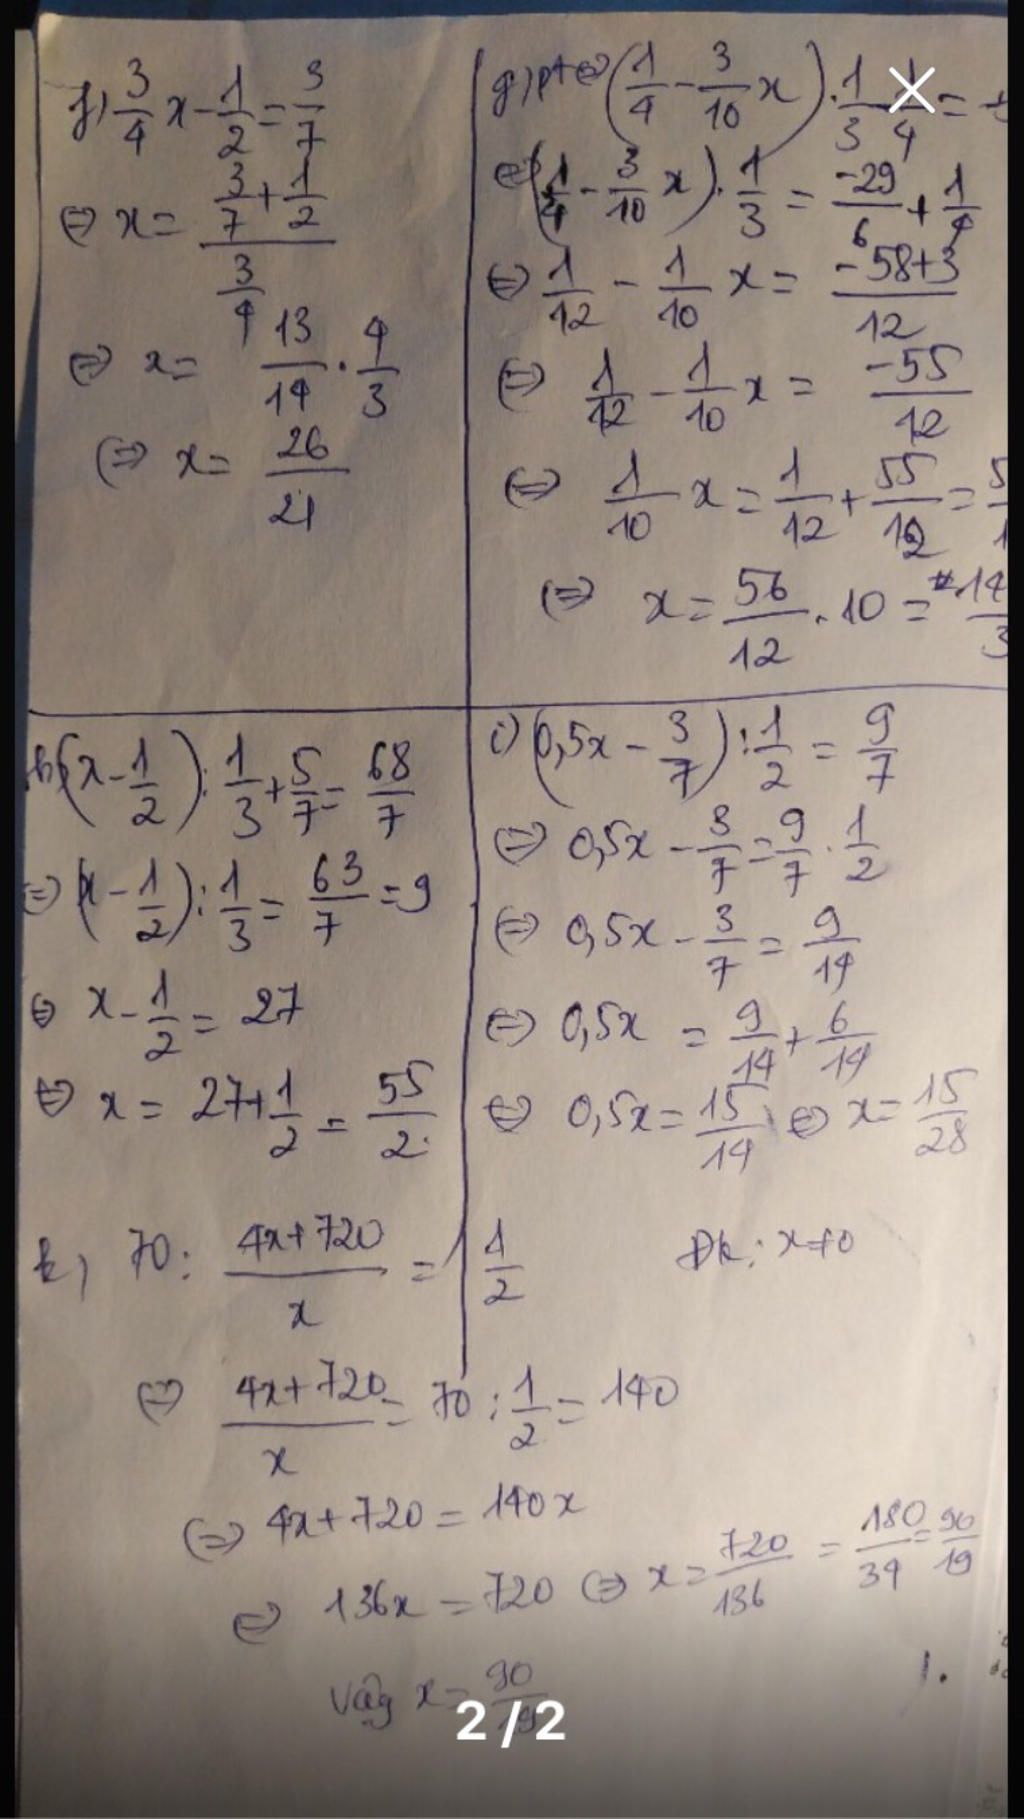 f) 3/4 x - 1/2 = 3/7
⇔ x = (3/7 + 1/2) / (3/4)
⇔ x = 13/14 . 4/3
⇔ x = 26/21
g) pt ⇔ (1/4 - 3/10 x) . 1/3 - 1/4 =
⇔ (1/4 - 3/10 x) . 1/3 = -29/6 + 1/4
⇔ 1/12 - 1/10 x = (-58+3)/12
⇔ 1/12 - 1/10 x = -55/12
⇔ 1/10 x = 1/12 + 55/12 =
⇔ x = 56/12 . 10 =
h) (x - 1/2) : 1/3 + 5/7 = 68/7
⇔ (x - 1/2) : 1/3 = 63/7 = 9
⇔ x - 1/2 = 27
⇔ x = 27 + 1/2 = 55/2
i) (0,5x - 3/7) : 1/2 = 9/7
⇔ 0,5x - 3/7 = 9/7 . 1/2
⇔ 0,5x - 3/7 = 9/14
⇔ 0,5x = 9/14 + 6/14
⇔ 0,5x = 15/14 ⇔ x = 15/28
k, 70 : (4x+720)/x = 1/2 Đk: x≠0
⇔ (4x+720)/x = 70 : 1/2 = 140
⇔ 4x+720 = 140x
⇔ 136x = 720 ⇔ x = 720/136 = 180/34 = 90/19
Vậy x = 90/19
2 / 2